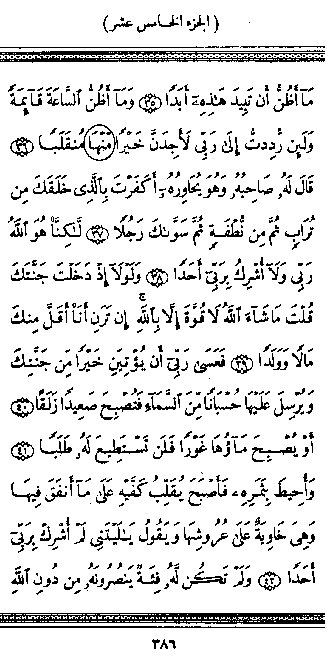 ( الجزء الخامس عشر )
مَآ أَظُنُّ أَن تَبِيدَ هَٰذِهِۦٓ أَبَدًا ٣٥ وَمَآ أَظُنُّ ٱلسَّاعَةَ قَآئِمَةً
وَلَئِن رُّدِدتُّ إِلَىٰ رَبِّى لَأَجِدَنَّ خَيْرًا مِّنْهَا مُنقَلَبًا ٣٦
قَالَ لَهُۥ صَاحِبُهُۥ وَهُوَ يُحَاوِرُهُۥٓ أَكَفَرْتَ بِٱلَّذِى خَلَقَكَ مِن
تُرَابٍ ثُمَّ مِن نُّطْفَةٍ ثُمَّ سَوَّىٰكَ رَجُلًا ٣٧ لَّٰكِنَّا۠ هُوَ ٱللَّهُ
رَبِّى وَلَآ أُشْرِكُ بِرَبِّىٓ أَحَدًا ٣٨ وَلَوْلَآ إِذْ دَخَلْتَ جَنَّتَكَ
قُلْتَ مَا شَآءَ ٱللَّهُ لَا قُوَّةَ إِلَّا بِٱللَّهِ ۚ إِن تَرَنِ أَنَا۠ أَقَلَّ مِنكَ
مَالًا وَوَلَدًا ٣٩ فَعَسَىٰ رَبِّىٓ أَن يُؤْتِيَنِ خَيْرًا مِّن جَنَّتِكَ
وَيُرْسِلَ عَلَيْهَا حُسْبَانًا مِّنَ ٱلسَّمَآءِ فَتُصْبِحَ صَعِيدًا زَلَقًا ٤٠
أَوْ يُصْبِحَ مَآؤُهَا غَوْرًا فَلَن تَسْتَطِيعَ لَهُۥ طَلَبًا ٤١
وَأُحِيطَ بِثَمَرِهِۦ فَأَصْبَحَ يُقَلِّبُ كَفَّيْهِ عَلَىٰ مَآ أَنفَقَ فِيهَا
وَهِىَ خَاوِيَةٌ عَلَىٰ عُرُوشِهَا وَيَقُولُ يَٰلَيْتَنِى لَمْ أُشْرِكْ بِرَبِّىٓ
أَحَدًا ٤٢ وَلَمْ تَكُن لَّهُۥ فِئَةٌ يَنصُرُونَهُۥ مِن دُونِ ٱللَّهِ
٣٨٦